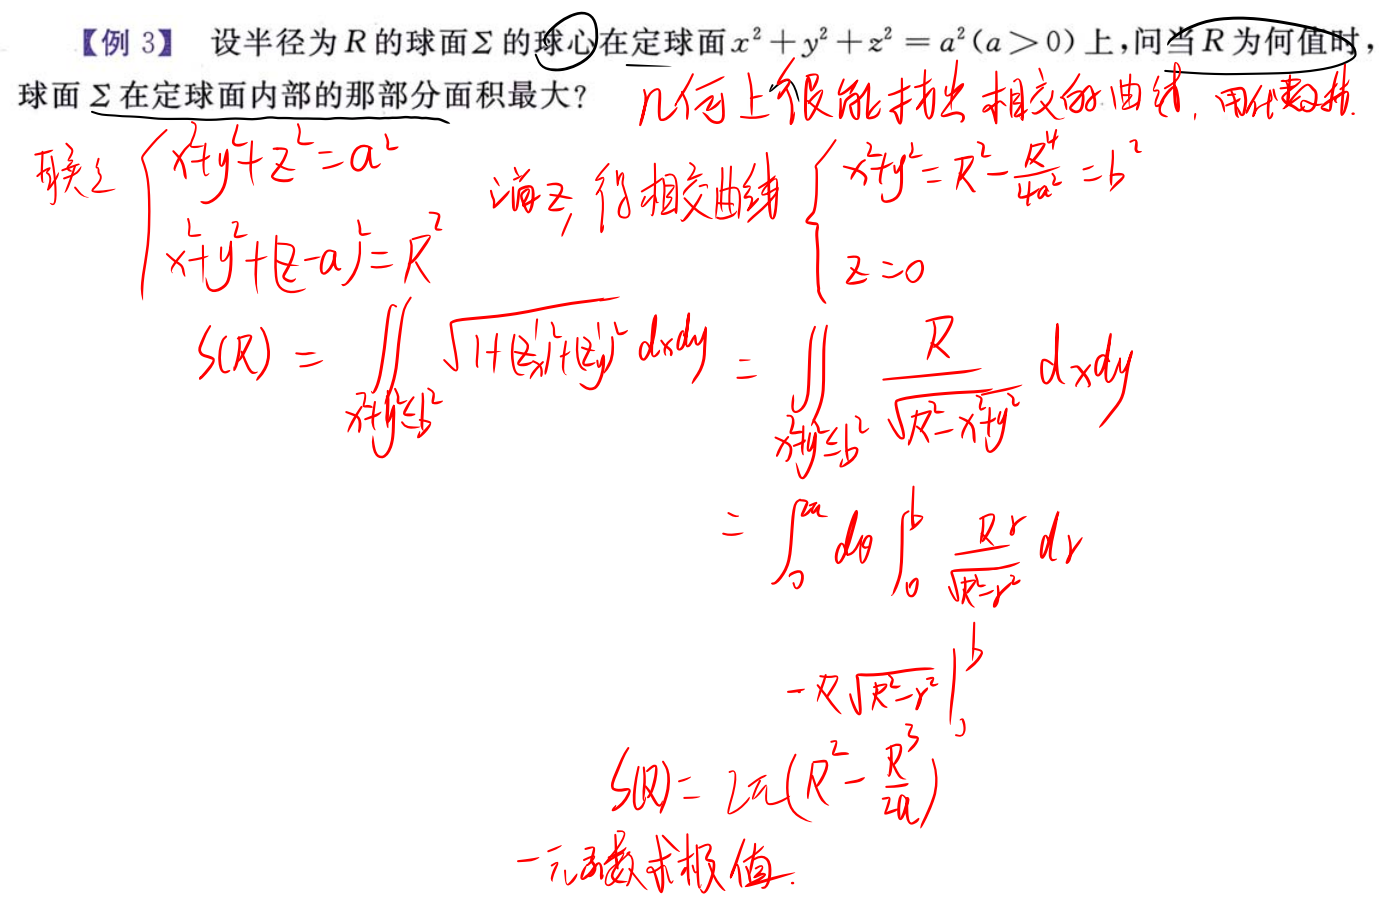 【例 3】 设半径为 R 的球面 Σ 的球心在定球面 x² + y² + z² = a² (a > 0) 上,问当 R 为何值时,
球面 Σ 在定球面内部的那部分面积最大?
几何上很能找出相交的曲线, 用代数找.
联立 { x²+y²+z²=a²
x²+y²+(z-a)²=R²
消z, 得相交曲线 { x²+y²=R²-R⁴/4a²=b²
z=0
S(R) = ∬_{x²+y²≤b²} √(1+(z'x)²+(z'y)²) dxdy = ∬_{x²+y²≤b²} R/√(R²-x²+y²) dxdy
= ∫₀^{2π} dθ ∫₀^b Rr/√(R²-r²) dr
-R√(R²-r²) |₀^b
S(R) = 2π(R² - R³/2a)
一元函数求极值.